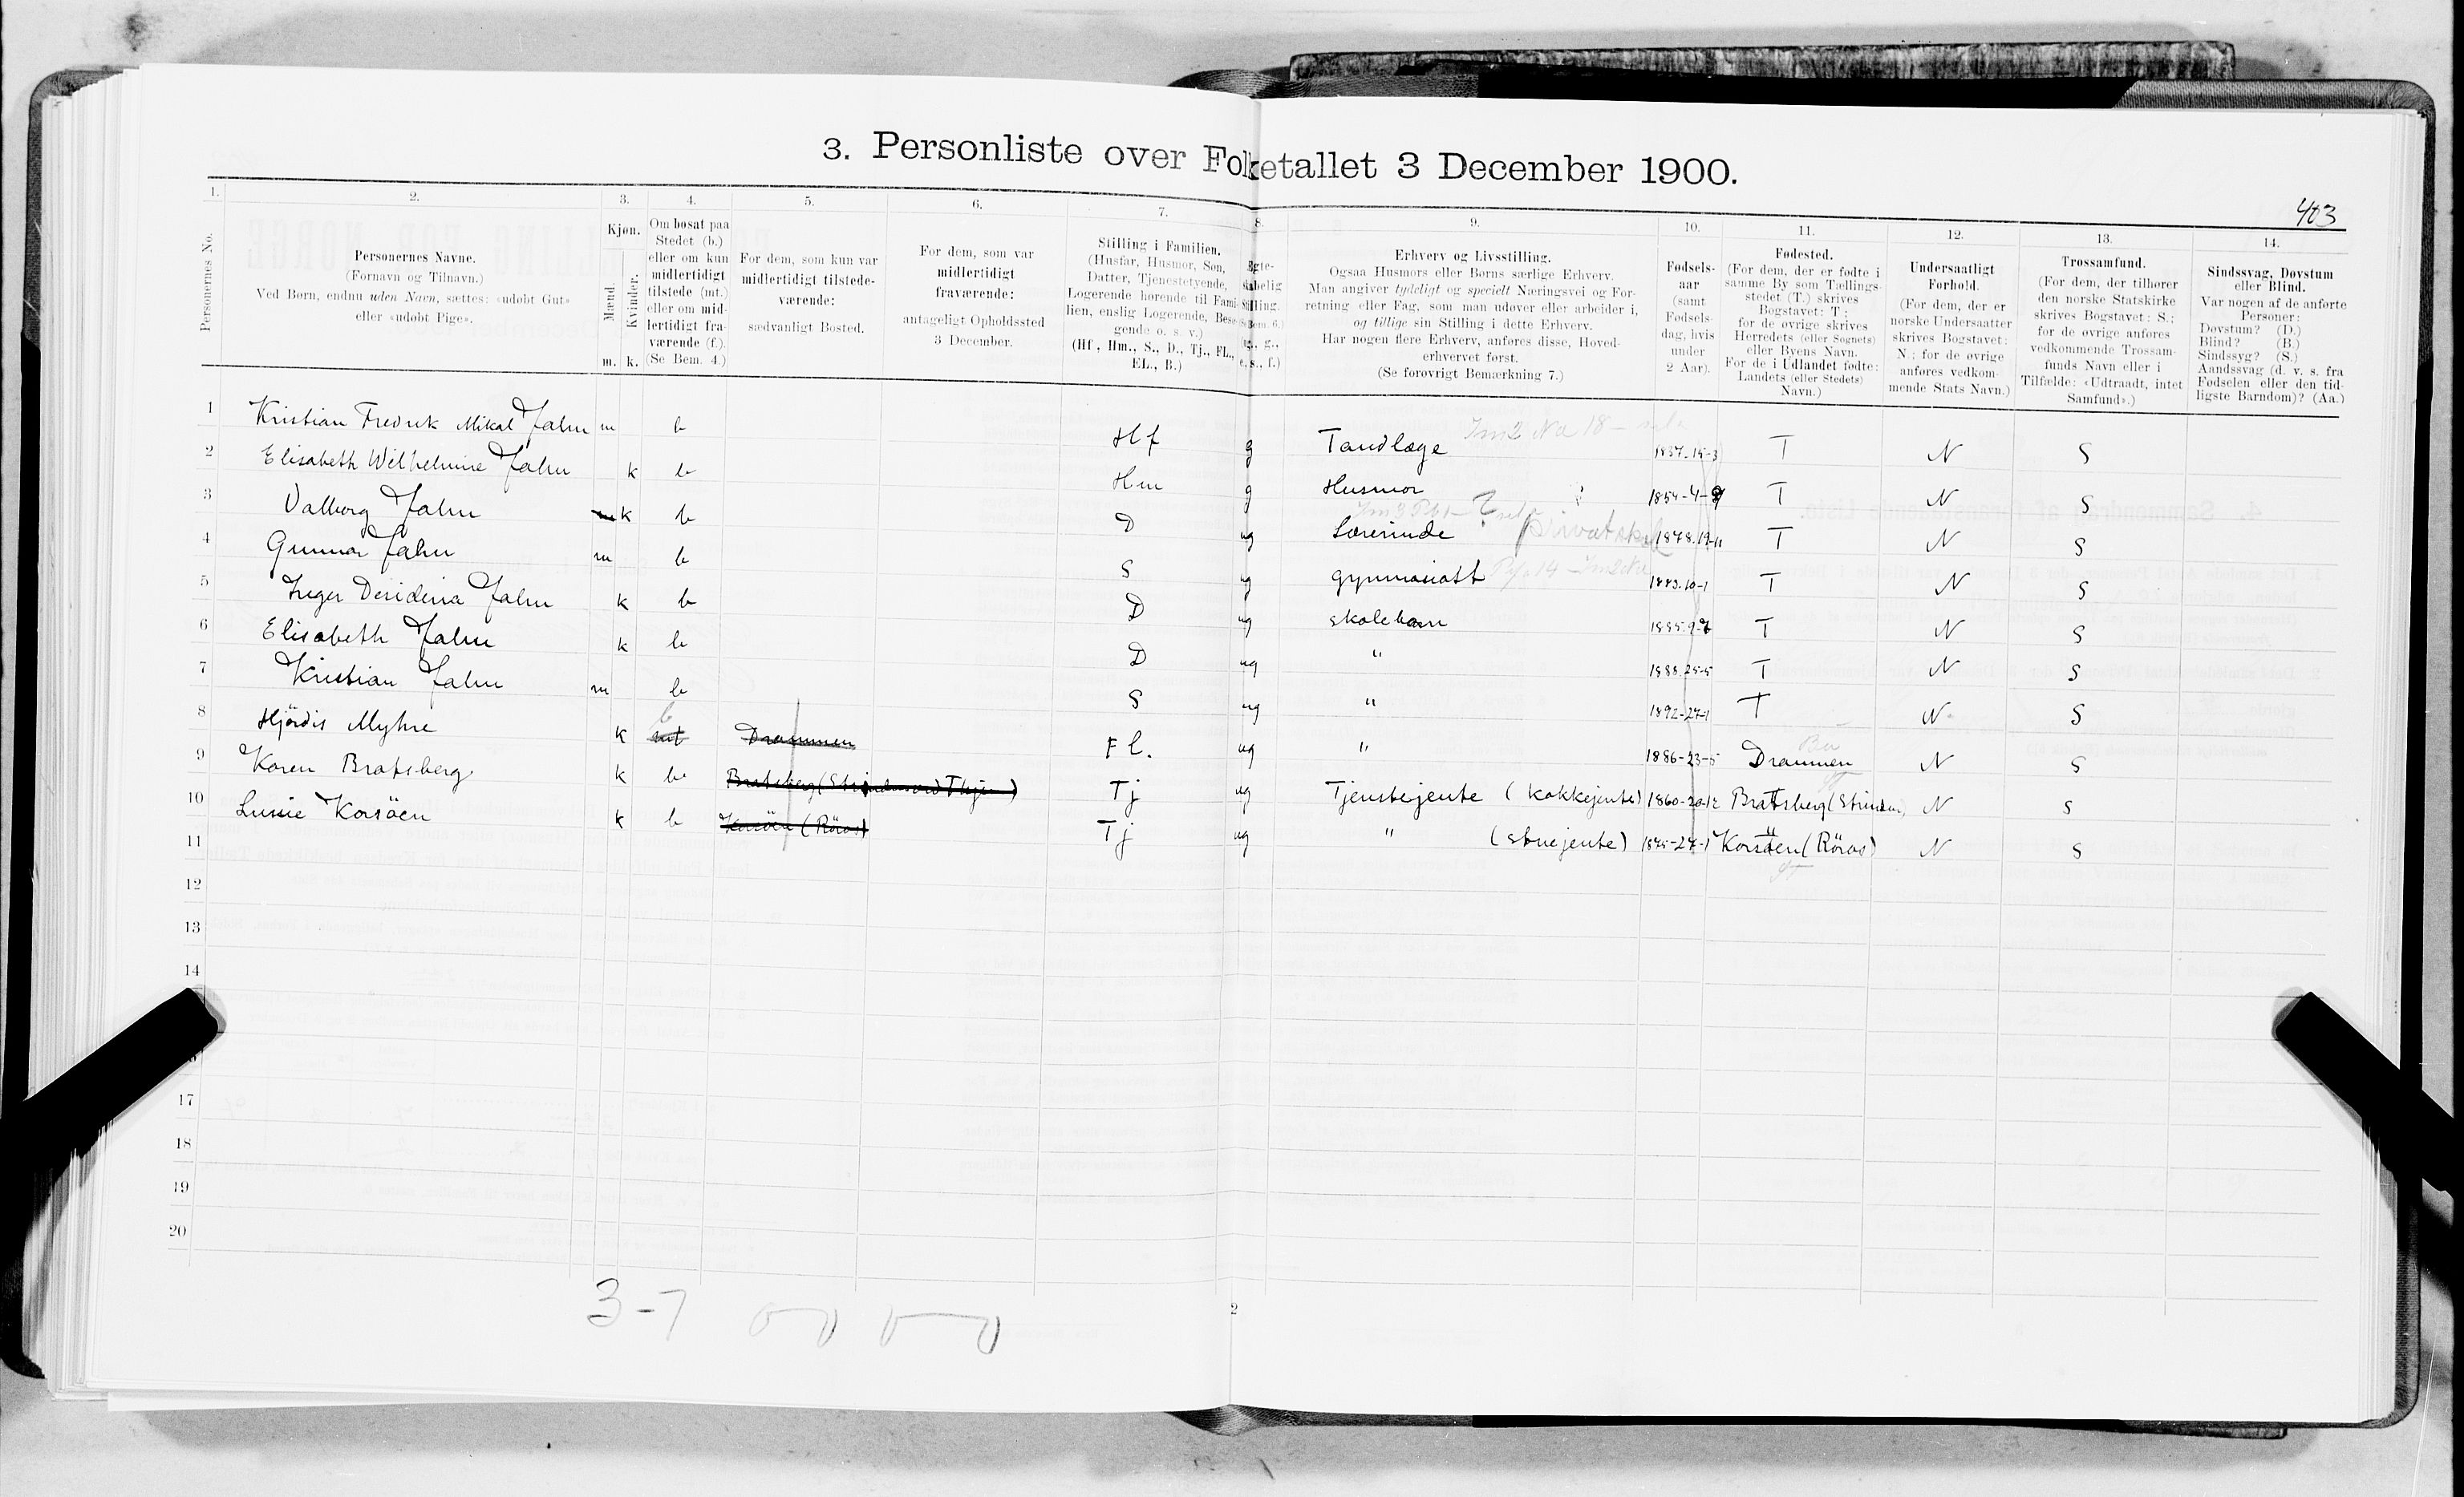 3. Personliste over Folketallet 3 December 1900.
403
1. 2. 3. 4. 5. 6. 7. 8. 9. 10. 11. 12. 13. 14.
Personernes No.
Personernes Navne.
(Fornavn og Tilnavn.)
Ved Børn, endnu uden Navn, sættes: «udøbt Gut»
eller «udøbt Pige».
Kjøn.
Mænd.
Kvinder.
m. k.
Om bosat paa
Stedet (b.)
eller om kun
midlertidigt
tilstede (mt.)
eller om mid-
lertidigt fra-
værende (f.).
(Se Bem. 4.)
For dem, som kun var
midlertidigt tilstede-
værende:
sædvanligt Bosted.
For dem, som var
midlertidigt
fraværende:
antageligt Opholdssted
3 December.
Stilling i Familien.
(Husfar, Husmor, Søn,
Datter, Tjenestetyende,
Logerende hørende til Fami-
lien, enslig Logerende, Besø-
gende o. s. v.)
(Hf., Hm., S., D., Tj., FL.,
EL., B.)
Ægte-
skabelig
Stilling.
(Se Bem. 6.)
(ug., g.,
e., s., f.)
Erhverv og Livsstilling.
Ogsaa Husmors eller Børns særlige Erhverv.
Man angiver tydeligt og specielt Næringsvei og For-
retning eller Fag, som man udøver eller arbeider i,
og tillige sin Stilling i dette Erhverv.
Har nogen flere Erhverv, anføres disse, Hoved-
erhvervet først.
(Se forøvrigt Bemærkning 7.)
Fødsels-
aar
(samt
Fødsels-
dag, hvis
under
2 Aar).
Fødested.
(For dem, der er fødte i
samme By som Tællings-
stedet (T.) skrives
Bogstavet: T;
for de øvrige skrives
Herredets (eller Sognets)
eller Byens Navn.
For de i Udlandet fødte:
Landets (eller Stedets)
Navn.)
Undersaatligt
Forhold.
(For dem, der er
norske Undersaatter
skrives Bogstavet:
N; for de øvrige
anføres vedkom-
mende Stats Navn.)
Trossamfund.
(For dem, der tilhører
den norske Statskirke
skrives Bogstavet: S.;
for de øvrige anføres
vedkommende Trossam-
funds Navn eller i
Tilfælde: «Udtraadt, intet
Samfund».)
Sindssvag, Døvstum
eller Blind.
Var nogen af de anførte
Personer:
Døvstum? (D.)
Blind? (B.)
Sindssyg? (S.)
Aandssvag (d. v. s. fra
Fødselen eller den tid-
ligste Barndom)? (Aa.)
1 Kristian Fredrik Mikal Jahn m b Hf g Tandlæge T N S
2 Elisabeth Wilhelmine Jahn k b Hm g Husmor T N S
3 Valborg Jahn k b D ug Lærerinde Privatskole T N S
4 Gunnar Jahn m b S ug gymnasiast 1883.10-1 T N S
5 Inger Desideria Jahn k b D ug skolebarn T N S
6 Elisabeth Jahn k b D ug " 1888.25-5 T N S
7 Kristian Jahn m b S ug " 1892-27-1 T N S
8 Hjördis Myhre k b mt Drammen FL. ug " 1886-23-5 Drammen N S
9 Karen Bratsberg k b Tj ug Tjenstejente (kokkejente) 1860-20-12 Bratsberg (Strinden) N S
10 Korsöen k b Korsöen (Röros) Tj ug " (stuejente) Korsöen (Röros) N S
11
12
13
14
17
18
19
20
3-7
2